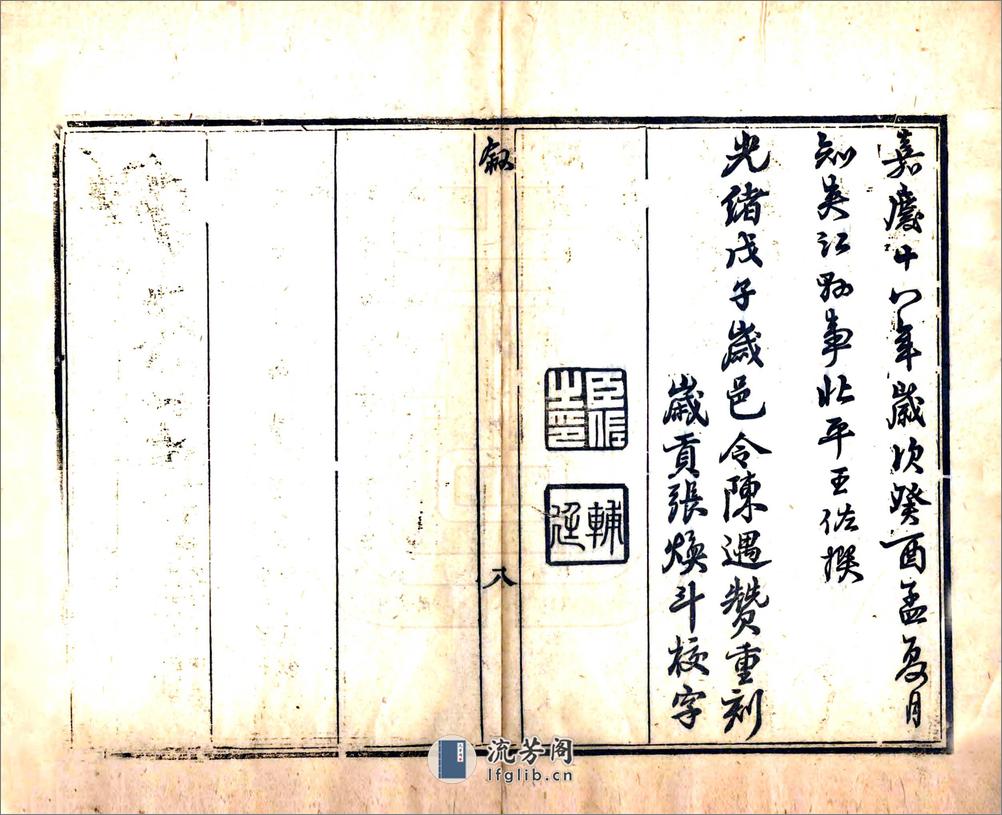 嘉慶十八年歲次癸酉孟夏月
知吳江縣事北平王佐撰
光緒戊子歲邑令陳遇贊重刻
歲貢張煥斗校字
臣佐之印
輔廷
敘
八
流芳阁
lfglib.cn